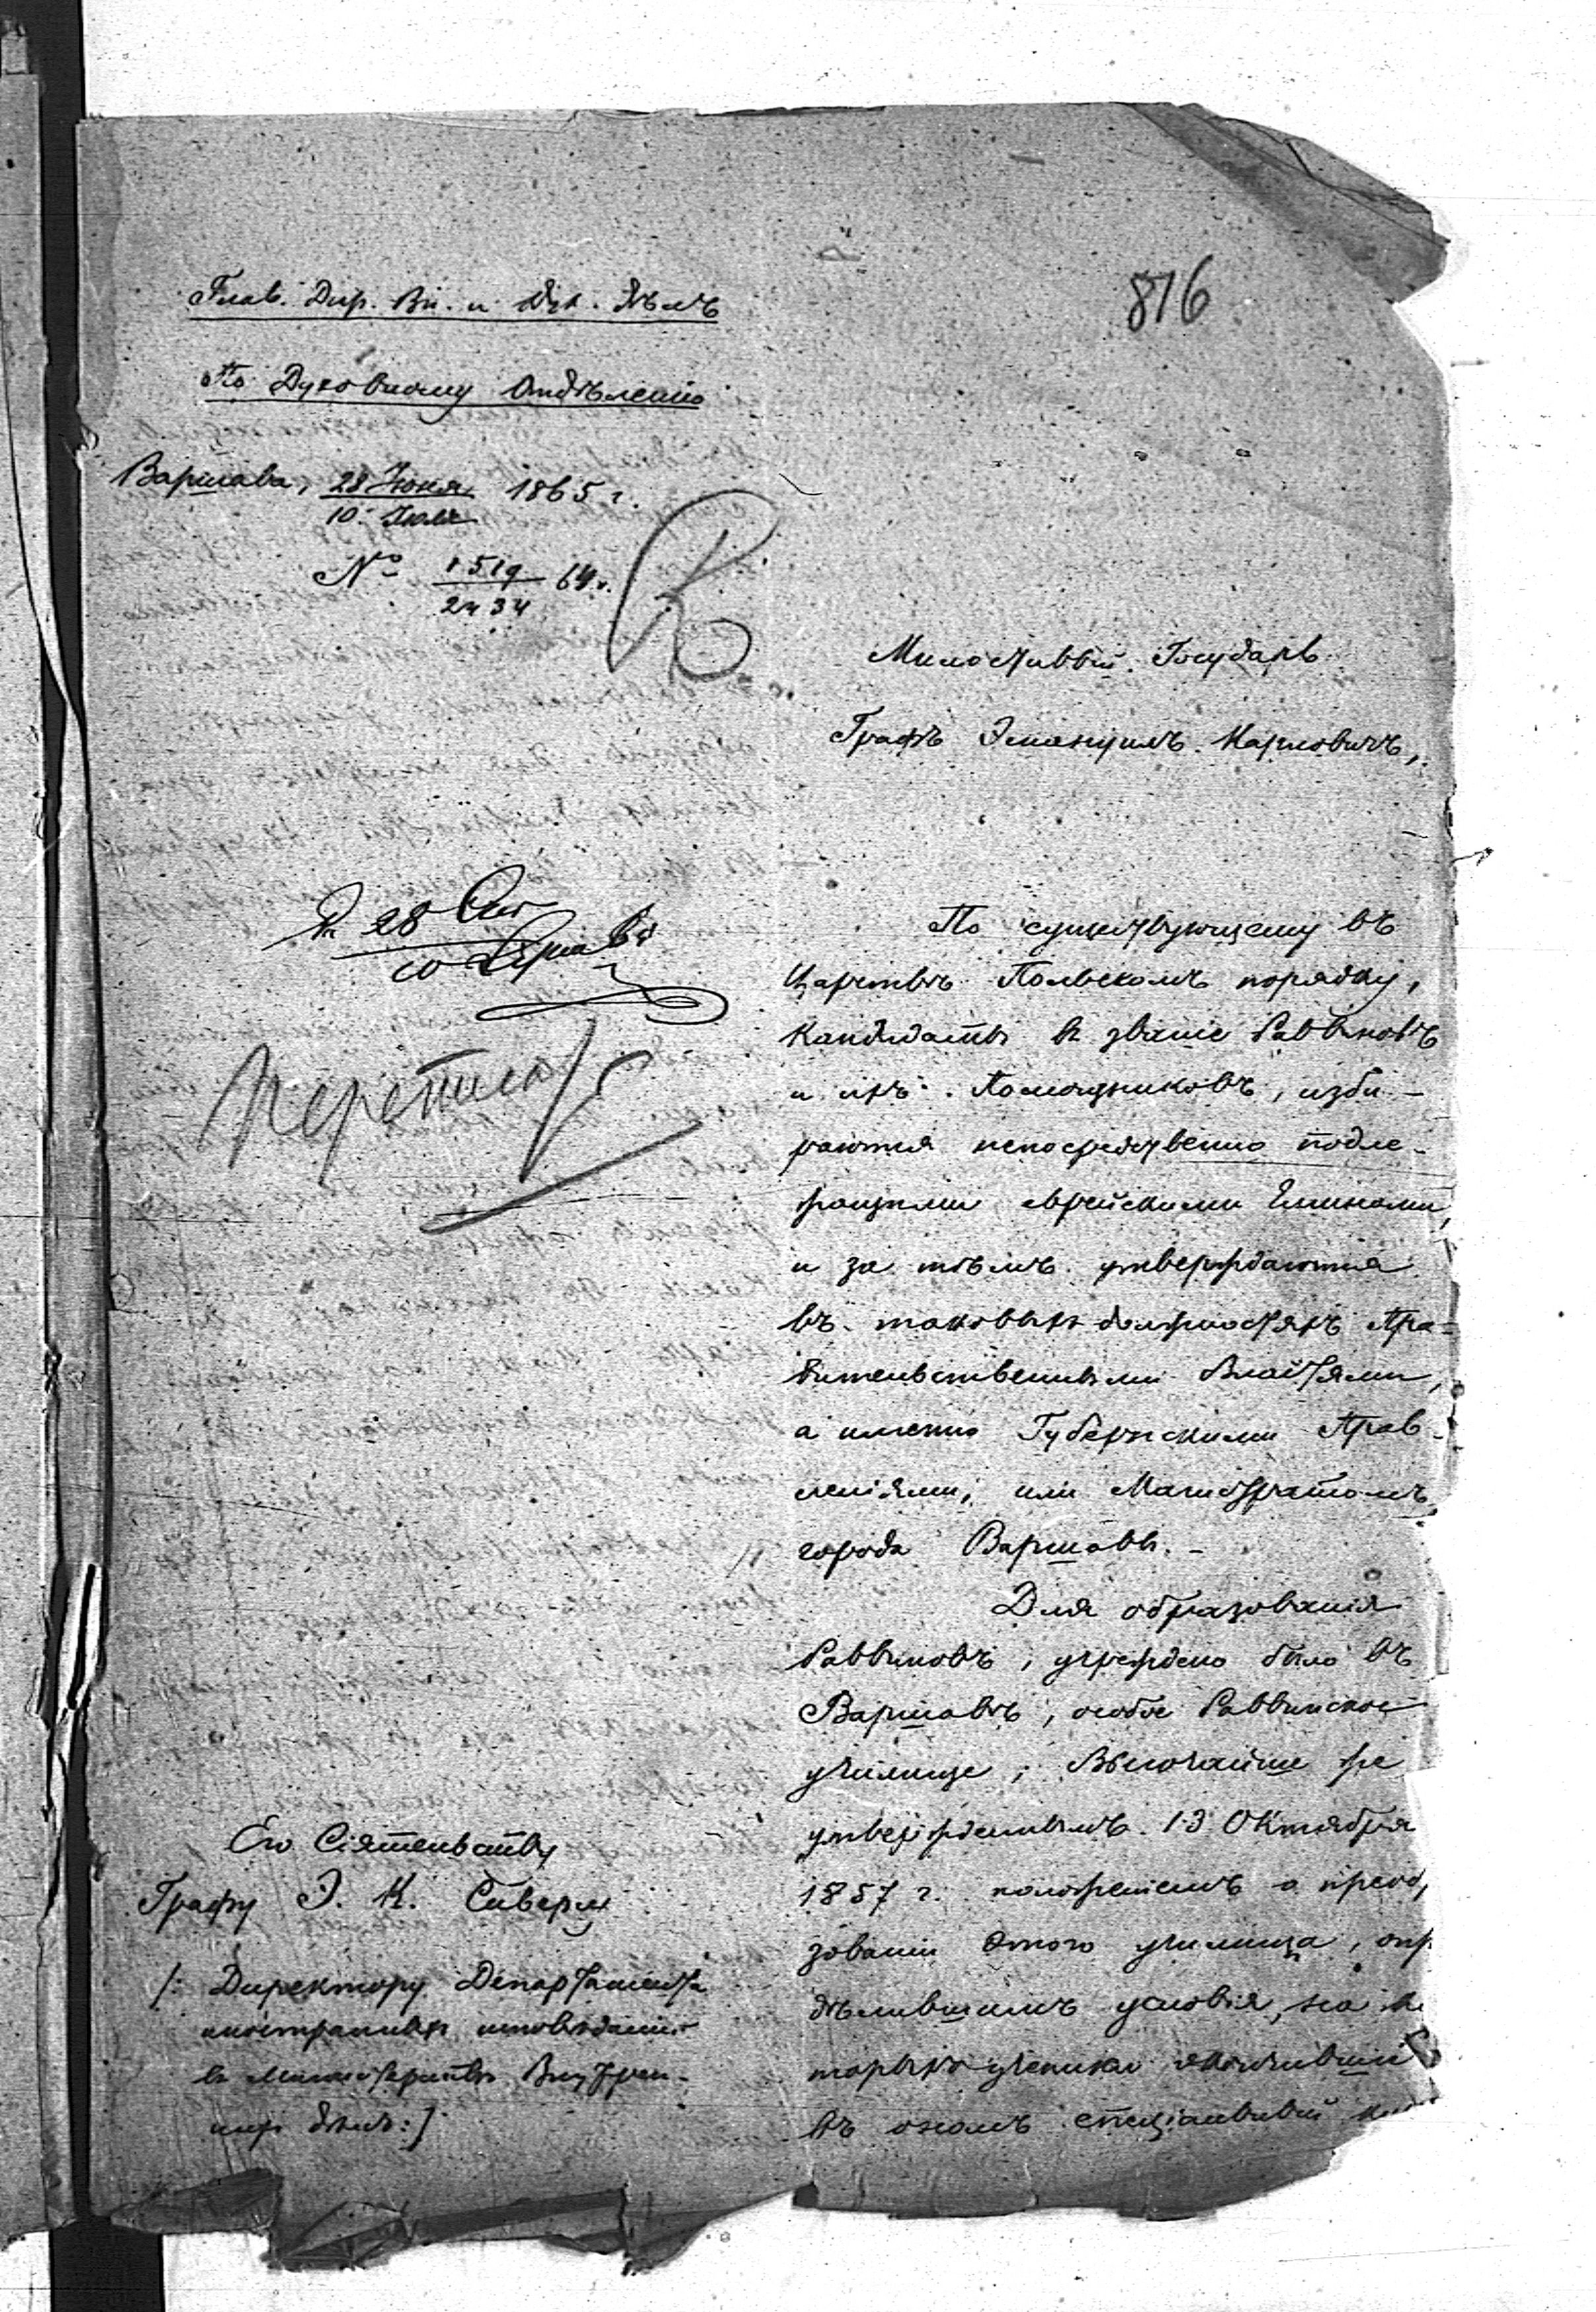 816
Глав. Дир. Вн. и Дух. Дѣлъ
По Духовному Отдѣленію
Варшава, 28 Іюня 1865 г.
10. Іюля
№ 1519 64 г.
2434
Милостивый Государь
Графъ Эмануилъ Карловичъ,
По существующему въ
Царствѣ Польскомъ порядку,
кандидаты въ званіе Раввиновъ
и ихъ Помощниковъ, изби-
раются непосредственно подле-
жащими еврейскими Гминами,
и за тѣмъ утверждаются
въ таковыхъ должностяхъ Пра-
вительственными Властями,
а именно Губернскими Прав-
леніями, или Магистратомъ
города Варшавы. -
Для образованія
Раввиновъ, учреждено было въ
Варшавѣ, особое Раввинское
училище; Высочайше же
утвержденнымъ 13 Октября
1857 г. положеніемъ о преоб
зованіи этого училища, опр
дѣлившимъ условія, на
торыхъ ученики окончившіе
въ ономъ спеціальный
Его Сіятельству
Графу Э. К. Сиверсу
/: Директору Департамента
иностранныхъ исповѣданій
въ Министерствѣ Внутрен-
нихъ дѣлъ :/